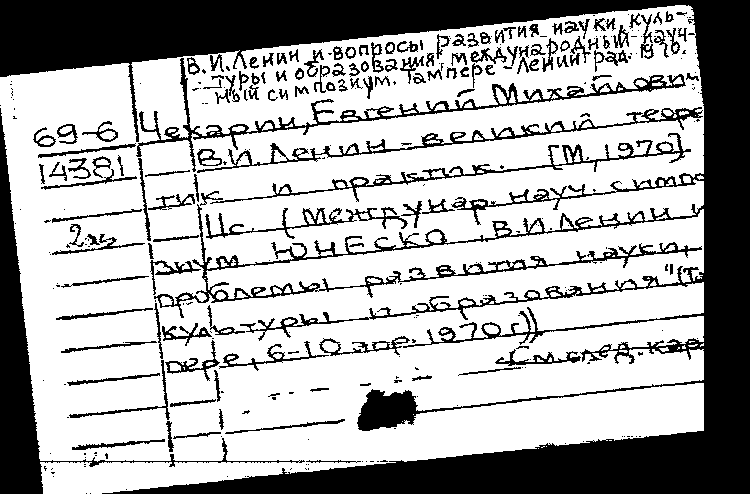 В.И.Ленин и вопросы развития науки, куль-
туры и образования, международный науч-
ный симпозиум. Тампере - Ленинград. 1970.
69-6 Чехарин, Евгений Михайлови
14381 В.И. Ленин - великий теоре
тик и практик. [М., 1970].
11с. (Междунар. науч. симпо
2 экз
зиум ЮНЕСКО „В.И. Ленин и
проблемы развития науки,
культуры и образования" (Та
пере, 6-10 апр. 1970 г.))
См. след. кар